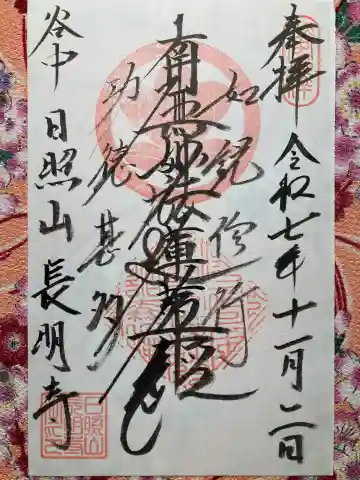 奉拝
令和七年十一月二日
如説修行
南無妙法蓮華経
功徳甚多
谷中 日照山 長明寺